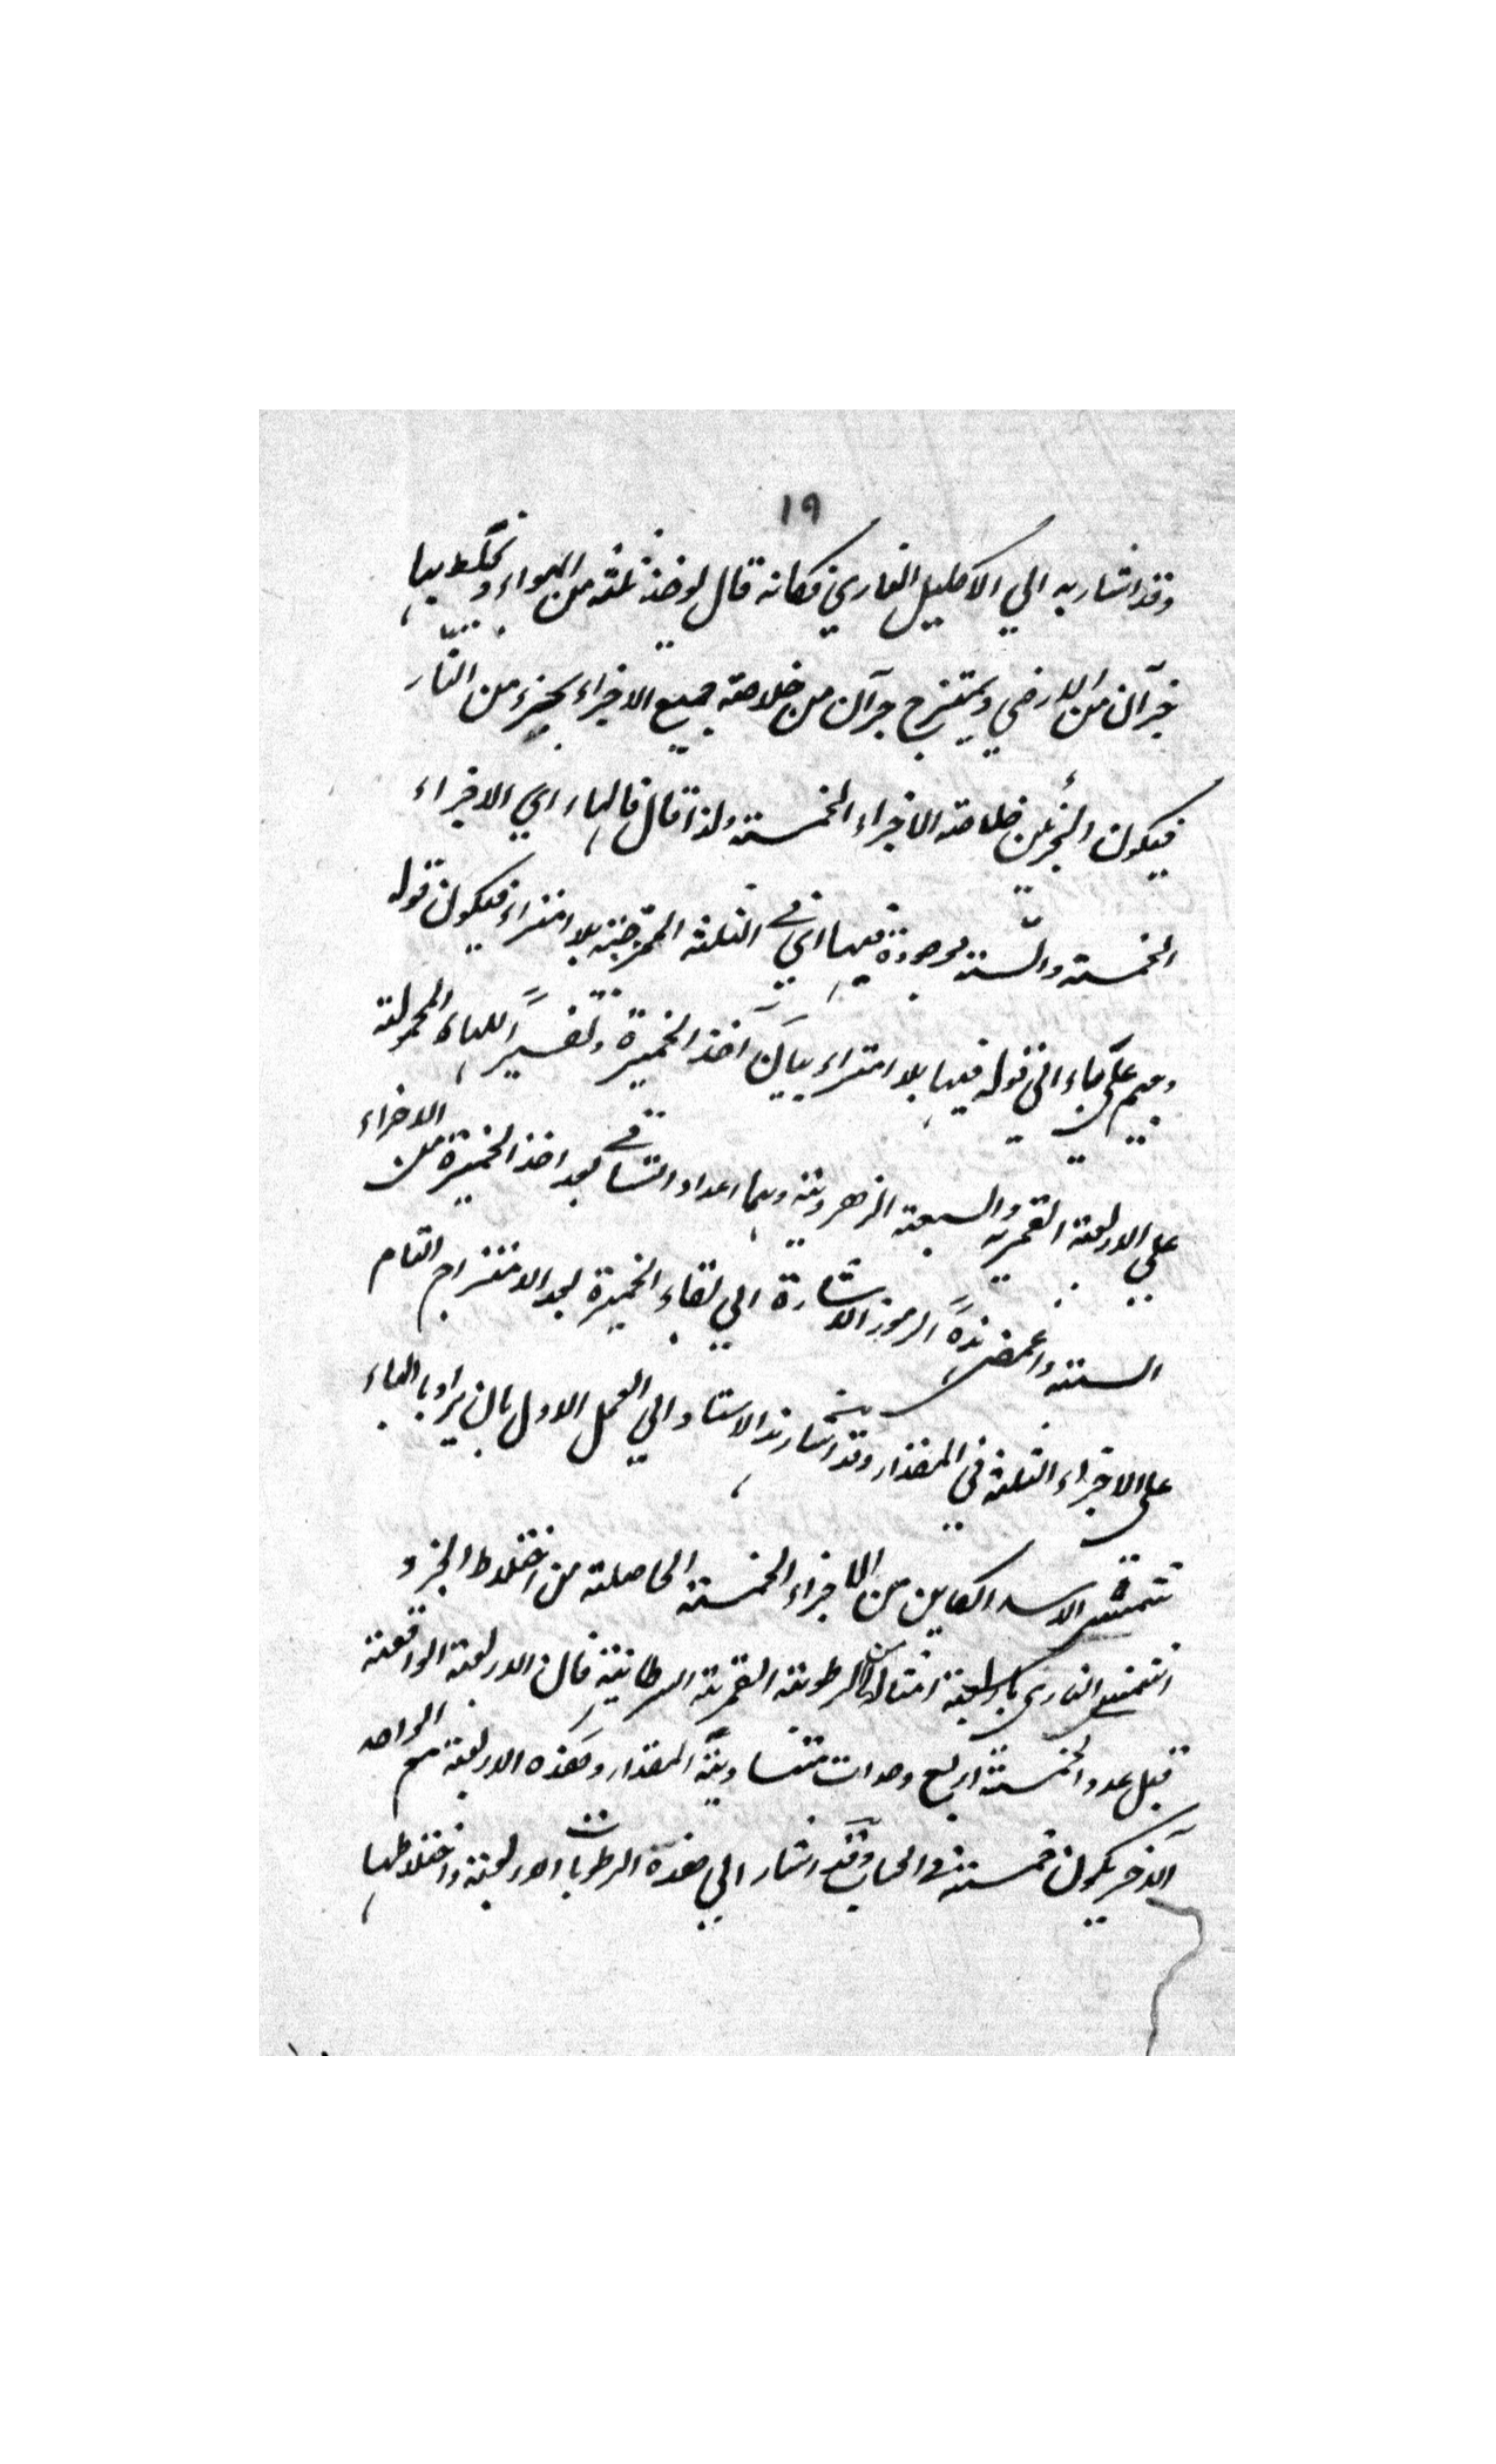 ١٩
وقد اشار به الي الاكليل الغاري فكانه قال لو خذ ثلثه من الهواء و تخلط بها
جزآن من الارضي ويمتزج جزآن من خلاصة جميع الاجزاء بجزء من النار
فيكون الجزئين خلاصة الاجزاء الخمسته ولذا قال فالها اي الاجزاء
الخمسته والستته موجودة فيها اي في الثلثه الممتزجته بلا امتراء فيكون قوله
فيها بلا امتراء بيان اخذ الخميرة وتفسيراً للهاء المحمولته
علي الاربعته القمريه والسبعته الزهرويته وهما اعداد التساقي بعد اخذ الخميرة من الاجزاء
الستته واغمض الرموز الاشارة الي بقاء الخميرة بعد الامتزاج التام
علي الاجزاء الثلثه في المقدار وقد اشار الاستاد الي العمل الاول بان يراد بالهاء
شمس الاسد الكاين من الاجزاء الخمسته الحاصلته من اختلاط الجزء
الشمسي الناري باربعته امثاله من الرطوبته القمريته السرطانيته فان الاربعته الواقعته
قبل عدد الخمسته اربع وحدات متساويته المقدار وهذه الاربعته مع الواحد
الاخر يكون خمسته في الحساب وقد اشار الي هذه الرطوبات الاربعته واختلاطها